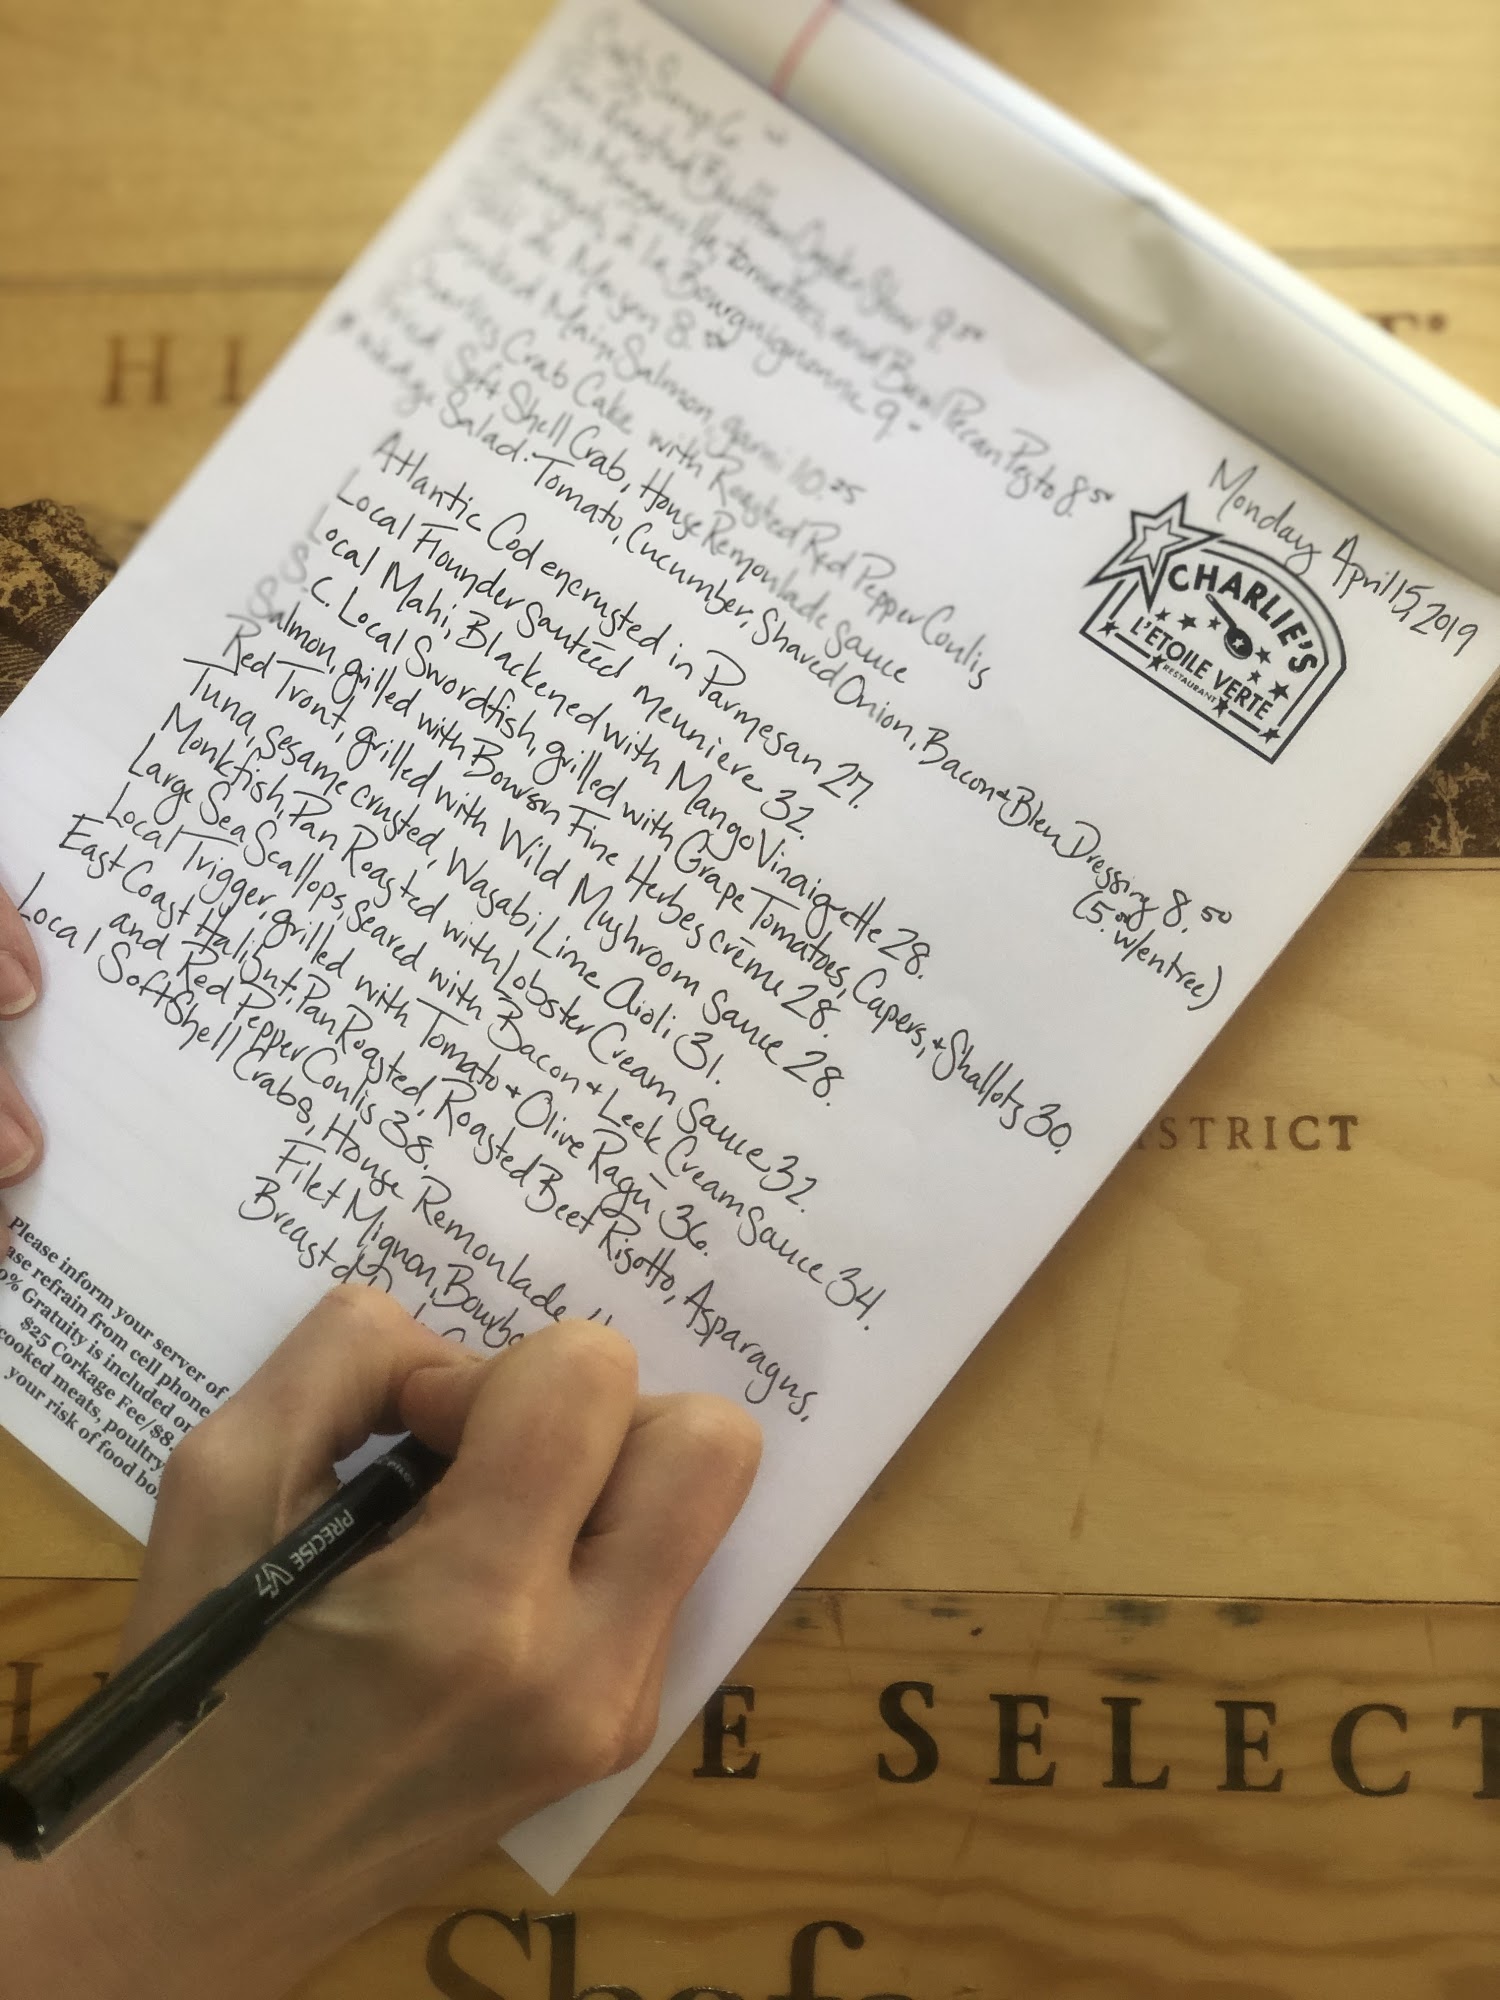 Monday April 15, 2019
CHARLIE'S
L'ETOILE VERTE
RESTAURANT
9.50
tomatoes, and Basil Pecan Pesto 8.50
à la Bourguignonne 9.-
8.50
Smoked Maine Salmon, garni 10.25
Charlies Crab Cake with Roasted Red Pepper Coulis
Fried Soft Shell Crab, House Remoulade Sauce
Salad: Tomato, Cucumber, Shaved Onion, Bacon + Bleu Dressing 8.50
(5.00 w/entree)
Atlantic Cod encrusted in Parmesan 27.
Local Flounder Sautéed meuniere 32.
Local Mahi, Blackened with Mango Vinaigrette 28.
S.C. Local Swordfish, grilled with Grape Tomatoes, Capers, + Shallots 30.
Salmon, grilled with Boursin Fine Herbes crème 28.
Red Trout, grilled with Wild Mushroom Sauce 28.
Tuna, Sesame crusted, Wasabi Lime Aioli 31.
Monkfish, Pan Roasted with Lobster Cream Sauce 32.
Large Sea Scallops, Seared with Bacon + Leek Cream Sauce 34.
Local Trigger, grilled with Tomato + Olive Ragu 36.
East Coast Halibut, Pan Roasted, Roasted Beet Risotto, Asparagus,
and Red Pepper Coulis 38.
Local Soft Shell Crabs, House Remoulade
Filet Mignon, Bourbo
Breast of
Please inform your server of
ase refrain from cell phone
0% Gratuity is included on
$25 Corkage Fee/$8.
cooked meats, poultry,
your risk of food bo
PRECISE V7
HI
DISTRICT
E SELECT